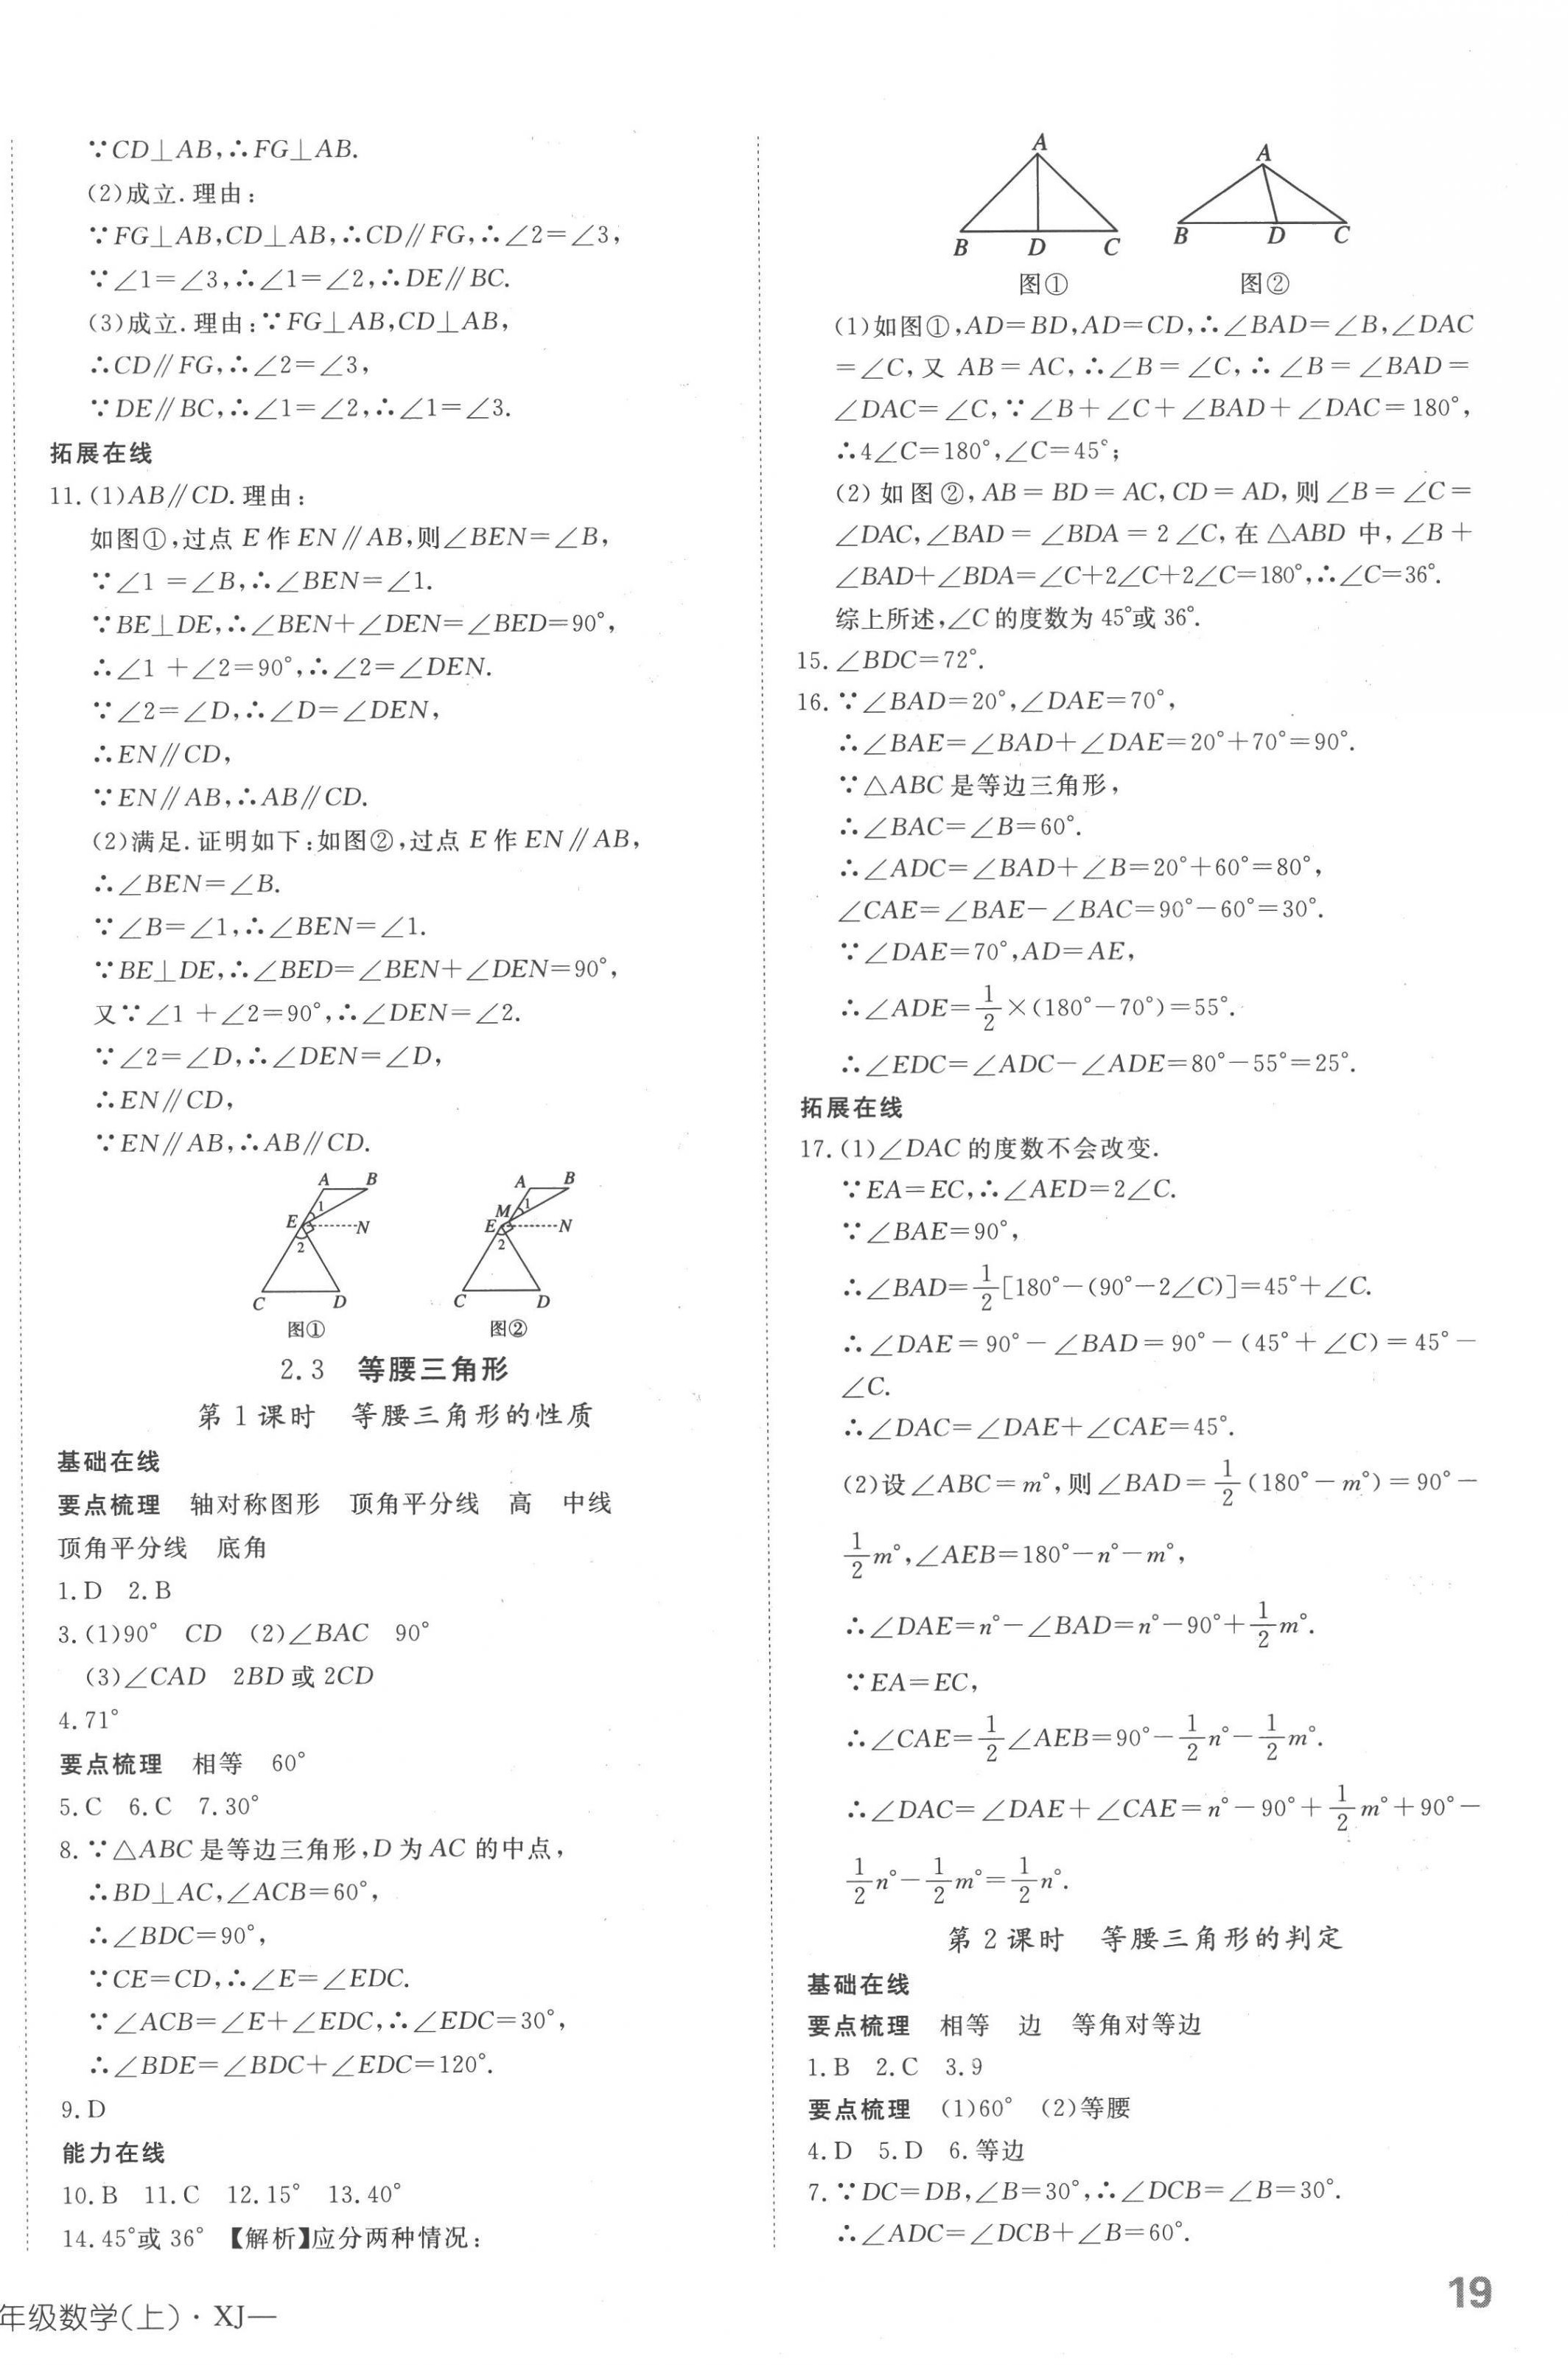 ∵CD⊥AB,∴FG⊥AB.
(2)成立.理由:
∵FG⊥AB,CD⊥AB,∴CD∥FG,∴∠2=∠3,
∵∠1=∠3,∴∠1=∠2,∴DE∥BC.
(3)成立.理由:∵FG⊥AB,CD⊥AB,
∴CD∥FG,∴∠2=∠3,
∵DE∥BC,∴∠1=∠2,∴∠1=∠3.
拓展在线
11.(1)AB∥CD.理由:
如图①,过点E作EN∥AB,则∠BEN=∠B,
∵∠1=∠B,∴∠BEN=∠1.
∵BE⊥DE,∴∠BEN+∠DEN=∠BED=90°,
∴∠1+∠2=90°,∴∠2=∠DEN.
∵∠2=∠D,∴∠D=∠DEN,
∴EN∥CD,
∵EN∥AB,∴AB∥CD.
(2)满足.证明如下:如图②,过点E作EN∥AB,
∴∠BEN=∠B.
∵∠B=∠1,∴∠BEN=∠1.
∵BE⊥DE,∴∠BED=∠BEN+∠DEN=90°,
又∵∠1+∠2=90°,∴∠DEN=∠2.
∵∠2=∠D,∴∠DEN=∠D,
∴EN∥CD,
∵EN∥AB,∴AB∥CD.
A B A B
1 M 1
E N E N
2 2
C D C D
图① 图②
2.3 等腰三角形
第1课时 等腰三角形的性质
基础在线
要点梳理 轴对称图形 顶角平分线 高 中线
顶角平分线 底角
1.D 2.B
3.(1)90° CD (2)∠BAC 90°
(3)∠CAD 2BD或2CD
4.71°
要点梳理 相等 60°
5.C 6.C 7.30°
8.∵△ABC是等边三角形,D为AC的中点,
∴BD⊥AC,∠ACB=60°,
∴∠BDC=90°,
∵CE=CD,∴∠E=∠EDC.
∵∠ACB=∠E+∠EDC,∴∠EDC=30°,
∴∠BDE=∠BDC+∠EDC=120°.
9.D
能力在线
10.B 11.C 12.15° 13.40°
14.45°或36° 【解析】应分两种情况:
A A
B D C B D C
图① 图②
(1)如图①,AD=BD,AD=CD,∴∠BAD=∠B,∠DAC
=∠C,又AB=AC,∴∠B=∠C,∴∠B=∠BAD=
∠DAC=∠C,∵∠B+∠C+∠BAD+∠DAC=180°,
∴4∠C=180°,∠C=45°;
(2)如图②,AB=BD=AC,CD=AD,则∠B=∠C=
∠DAC,∠BAD=∠BDA=2∠C,在△ABD中,∠B+
∠BAD+∠BDA=∠C+2∠C+2∠C=180°,∴∠C=36°.
综上所述,∠C的度数为45°或36°.
15.∠BDC=72°.
16.∵∠BAD=20°,∠DAE=70°,
∴∠BAE=∠BAD+∠DAE=20°+70°=90°.
∵△ABC是等边三角形,
∴∠BAC=∠B=60°.
∴∠ADC=∠BAD+∠B=20°+60°=80°,
∠CAE=∠BAE-∠BAC=90°-60°=30°.
∵∠DAE=70°,AD=AE,
∴∠ADE=1/2×(180°-70°)=55°.
∴∠EDC=∠ADC-∠ADE=80°-55°=25°.
拓展在线
17.(1)∠DAC的度数不会改变.
∵EA=EC,∴∠AED=2∠C.
∵∠BAE=90°,
∴∠BAD=1/2[180°-(90°-2∠C)]=45°+∠C.
∴∠DAE=90°-∠BAD=90°-(45°+∠C)=45°-
∠C.
∴∠DAC=∠DAE+∠CAE=45°.
(2)设∠ABC=m°,则∠BAD=1/2(180°-m°)=90°-
1/2m°,∠AEB=180°-n°-m°,
∴∠DAE=n°-∠BAD=n°-90°+1/2m°.
∵EA=EC,
∴∠CAE=1/2∠AEB=90°-1/2n°-1/2m°.
∴∠DAC=∠DAE+∠CAE=n°-90°+1/2m°+90°-
1/2n°-1/2m°=1/2n°.
第2课时 等腰三角形的判定
基础在线
要点梳理 相等 边 等角对等边
1.B 2.C 3.9
要点梳理 (1)60° (2)等腰
4.D 5.D 6.等边
7.∵DC=DB,∠B=30°,∴∠DCB=∠B=30°.
∴∠ADC=∠DCB+∠B=60°.
年级数学(上)·XJ—
19